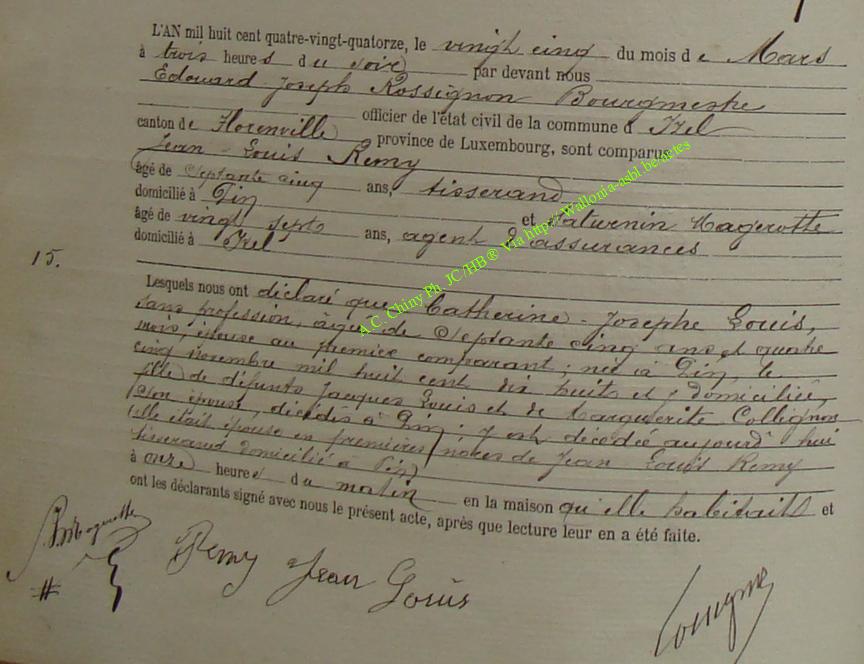 L'AN mil huit cent quatre-vingt-quatorze, le vingt cinq du mois de Mars
à trois heures du soir par devant nous
Edouard Joseph Rossignon Bourgmestre
officier de l'état civil de la commune d'Izel
canton de Florenville province de Luxembourg, sont comparus
Jean-Louis Remy
âgé de Septante cinq ans, tisserand
domicilié à Pin et Saturnin Magerotte
âgé de vingt sept ans, agent d'assurances
domicilié à Izel
15.
Lesquels nous ont déclaré que Catherine-Josephe Louis,
sans profession, âgée de Septante cinq ans et quatre
mois, épouse au premier comparant; née à Pin, le
cinq novembre mil huit cent dix huit et y domiciliée,
fille de défunts Jacques Louis et de Marguerite Collignon
son épouse, décédés à Pin; y est décédée aujourd'hui
(elle était épouse en premières noces de Jean Louis Remy
tisserand domicilié à Pin)
à onze heures du matin en la maison qu'elle habitait et
ont les déclarants signé avec nous le présent acte, après que lecture leur en a été faite.
Magerotte
Remy Jean Louis
A.C. Chiny Ph. JC/HB® Via http://Wallonia-asbl.be/actes